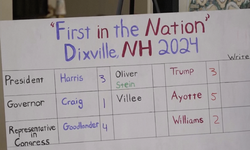 "First in the Nation"
Dixville, NH 2024
Write
President Harris 3 Oliver Stein Trump 3
Governor Craig 1 Villee Ayotte 5
Representative in Congress Goodlander 4 Williams 2